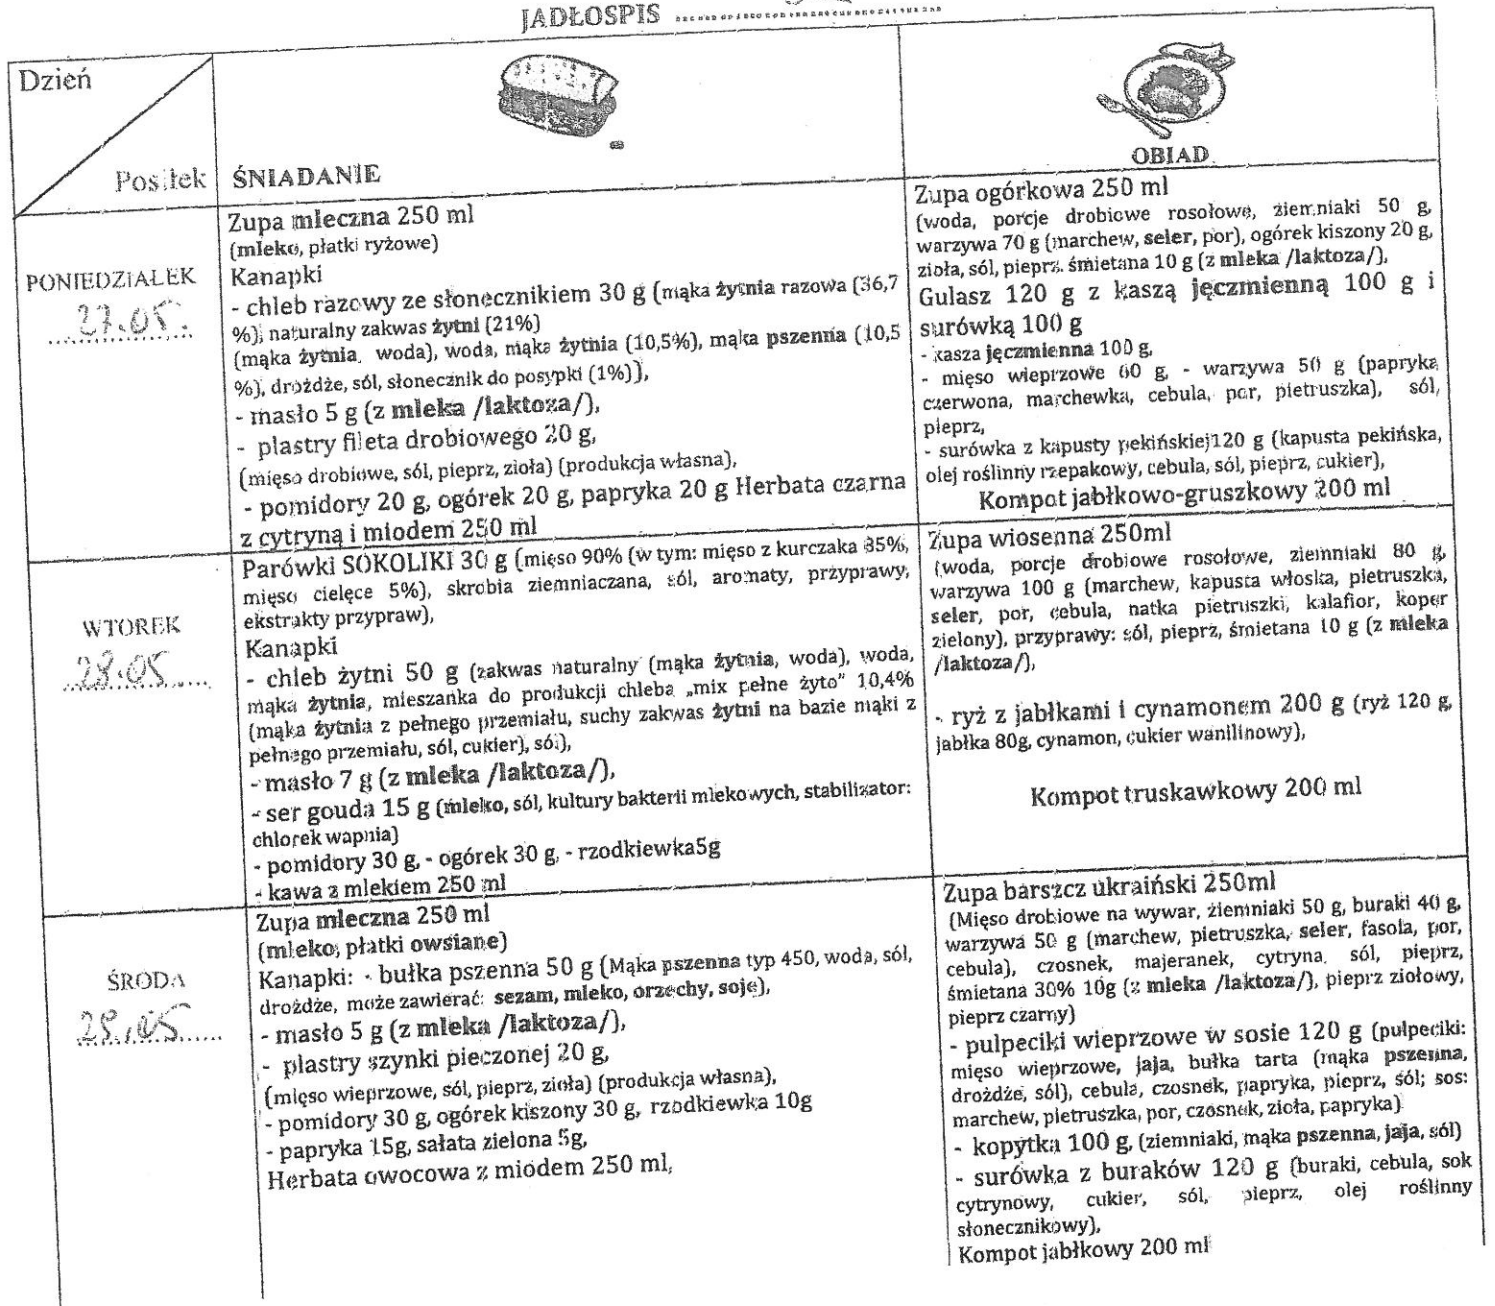 JADŁOSPIS
Dzień
Posiłek
ŚNIADANIE
OBIAD
PONIEDZIAŁEK
27.05.
Zupa mleczna 250 ml
(mleko, płatki ryżowe)
Kanapki
- chleb razowy ze słonecznikiem 30 g (mąka żytnia razowa (36,7
%), naturalny zakwas żytni (21%)
(mąka żytnia, woda), woda, mąka żytnia (10,5%), mąka pszenna (10,5
%), drożdże, sól, słonecznik do posypki (1%)),
- masło 5 g (z mleka /laktoza/),
- plastry fileta drobiowego 20 g,
(mięso drobiowe, sól, pieprz, zioła) (produkcja własna),
- pomidory 20 g, ogórek 20 g, papryka 20 g Herbata czarna
z cytryną i miodem 250 ml
Zupa ogórkowa 250 ml
(woda, porcje drobiowe rosołowe, ziemniaki 50 g,
warzywa 70 g (marchew, seler, por), ogórek kiszony 20 g,
zioła, sól, pieprz, śmietana 10 g (z mleka /laktoza/),
Gulasz 120 g z kaszą jęczmienną 100 g i
surówką 100 g
- kasza jęczmienna 100 g,
- mięso wieprzowe 60 g, - warzywa 50 g (papryka
czerwona, marchewka, cebula, por, pietruszka), sól,
pieprz,
- surówka z kapusty pekińskiej120 g (kapusta pekińska,
olej roślinny rzepakowy, cebula, sól, pieprz, cukier),
Kompot jabłkowo-gruszkowy 200 ml
WTOREK
28.05
Parówki SOKOLIKI 30 g (mięso 90% (w tym: mięso z kurczaka 85%,
mięso cielęce 5%), skrobia ziemniaczana, sól, aromaty, przyprawy,
ekstrakty przypraw),
Kanapki
- chleb żytni 50 g (zakwas naturalny (mąka żytnia, woda), woda,
mąka żytnia, mieszanka do produkcji chleba „mix pełne żyto” 10,4%
(mąka żytnia z pełnego przemiału, suchy zakwas żytni na bazie mąki z
pełnego przemiału, sól, cukier), sól),
- masło 7 g (z mleka /laktoza/),
- ser gouda 15 g (mleko, sól, kultury bakterii mlekowych, stabilizator:
chlorek wapnia)
- pomidory 30 g, - ogórek 30 g, - rzodkiewka5g
- kawa z mlekiem 250 ml
Zupa wiosenna 250ml
(woda, porcje drobiowe rosołowe, ziemniaki 80 g,
warzywa 100 g (marchew, kapusta włoska, pietruszka,
seler, por, cebula, natka pietruszki, kalafior, koper
zielony), przyprawy: sól, pieprz, śmietana 10 g (z mleka
/laktoza/),
- ryż z jabłkami i cynamonem 200 g (ryż 120 g,
jabłka 80g, cynamon, cukier wanilinowy),
Kompot truskawkowy 200 ml
ŚRODA
29.05
Zupa mleczna 250 ml
(mleko, płatki owsiane)
Kanapki: - bułka pszenna 50 g (Mąka pszenna typ 450, woda, sól,
drożdże, może zawierać: sezam, mleko, orzechy, soję),
- masło 5 g (z mleka /laktoza/),
- plastry szynki pieczonej 20 g,
(mięso wieprzowe, sól, pieprz, zioła) (produkcja własna),
- pomidory 30 g, ogórek kiszony 30 g, rzodkiewka 10g
- papryka 15g, sałata zielona 5g,
Herbata owocowa z miodem 250 ml,
Zupa barszcz ukraiński 250ml
(Mięso drobiowe na wywar, ziemniaki 50 g, buraki 40 g,
warzywa 50 g (marchew, pietruszka, seler, fasola, por,
cebula), czosnek, majeranek, cytryna, sól, pieprz,
śmietana 30% 10g (z mleka /laktoza/), pieprz ziołowy,
pieprz czarny)
- pulpeciki wieprzowe w sosie 120 g (pulpeciki:
mięso wieprzowe, jaja, bułka tarta (mąka pszenna,
drożdże, sól), cebula, czosnek, papryka, pieprz, sól; sos:
marchew, pietruszka, por, czosnek, zioła, papryka)
- kopytka 100 g, (ziemniaki, mąka pszenna, jaja, sól)
- surówka z buraków 120 g (buraki, cebula, sok
cytrynowy, cukier, sól, pieprz, olej roślinny
słonecznikowy),
Kompot jabłkowy 200 ml